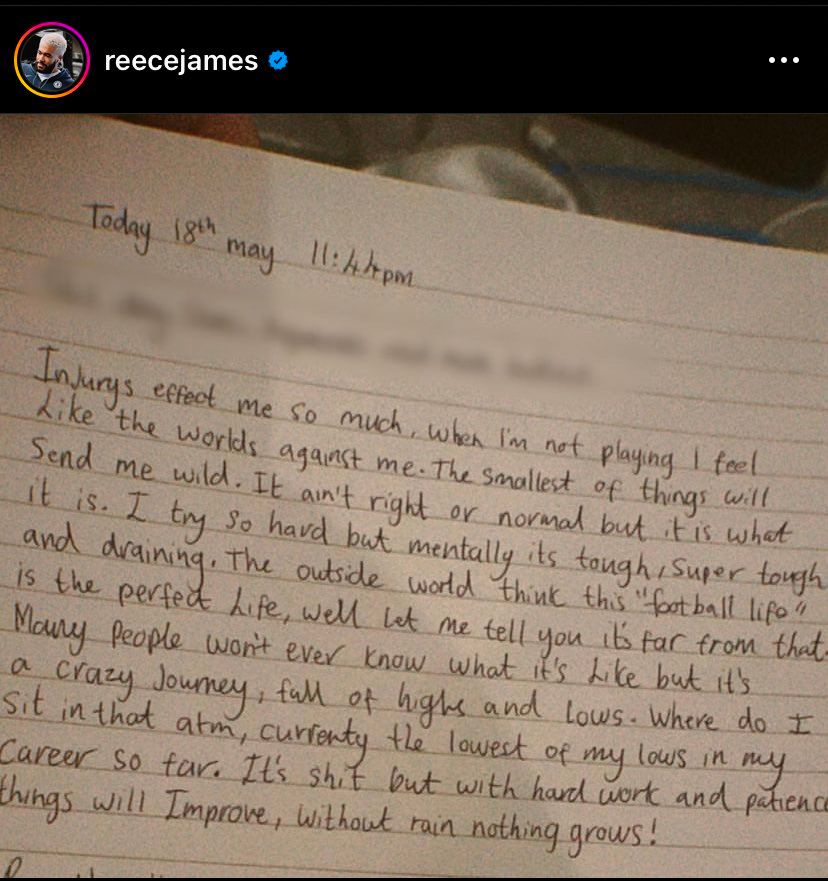 reecejames
Today 18th may 11:44pm
Injurys effect me so much, when I'm not playing I feel
Like the worlds against me. The smallest of things will
Send me wild. It ain't right or normal but it is what
it is. I try so hard but mentally its tough, super tough
and draining. The outside world think this "football life"
is the perfect Life, well let me tell you it's far from that.
Many People won't ever know what it's Like but it's
a crazy Journey, full of highs and Lows. Where do I
sit in that atm, currenty the lowest of my lows in my
Career so far. It's shit but with hard work and patienc
things will Improve, without rain nothing grows!